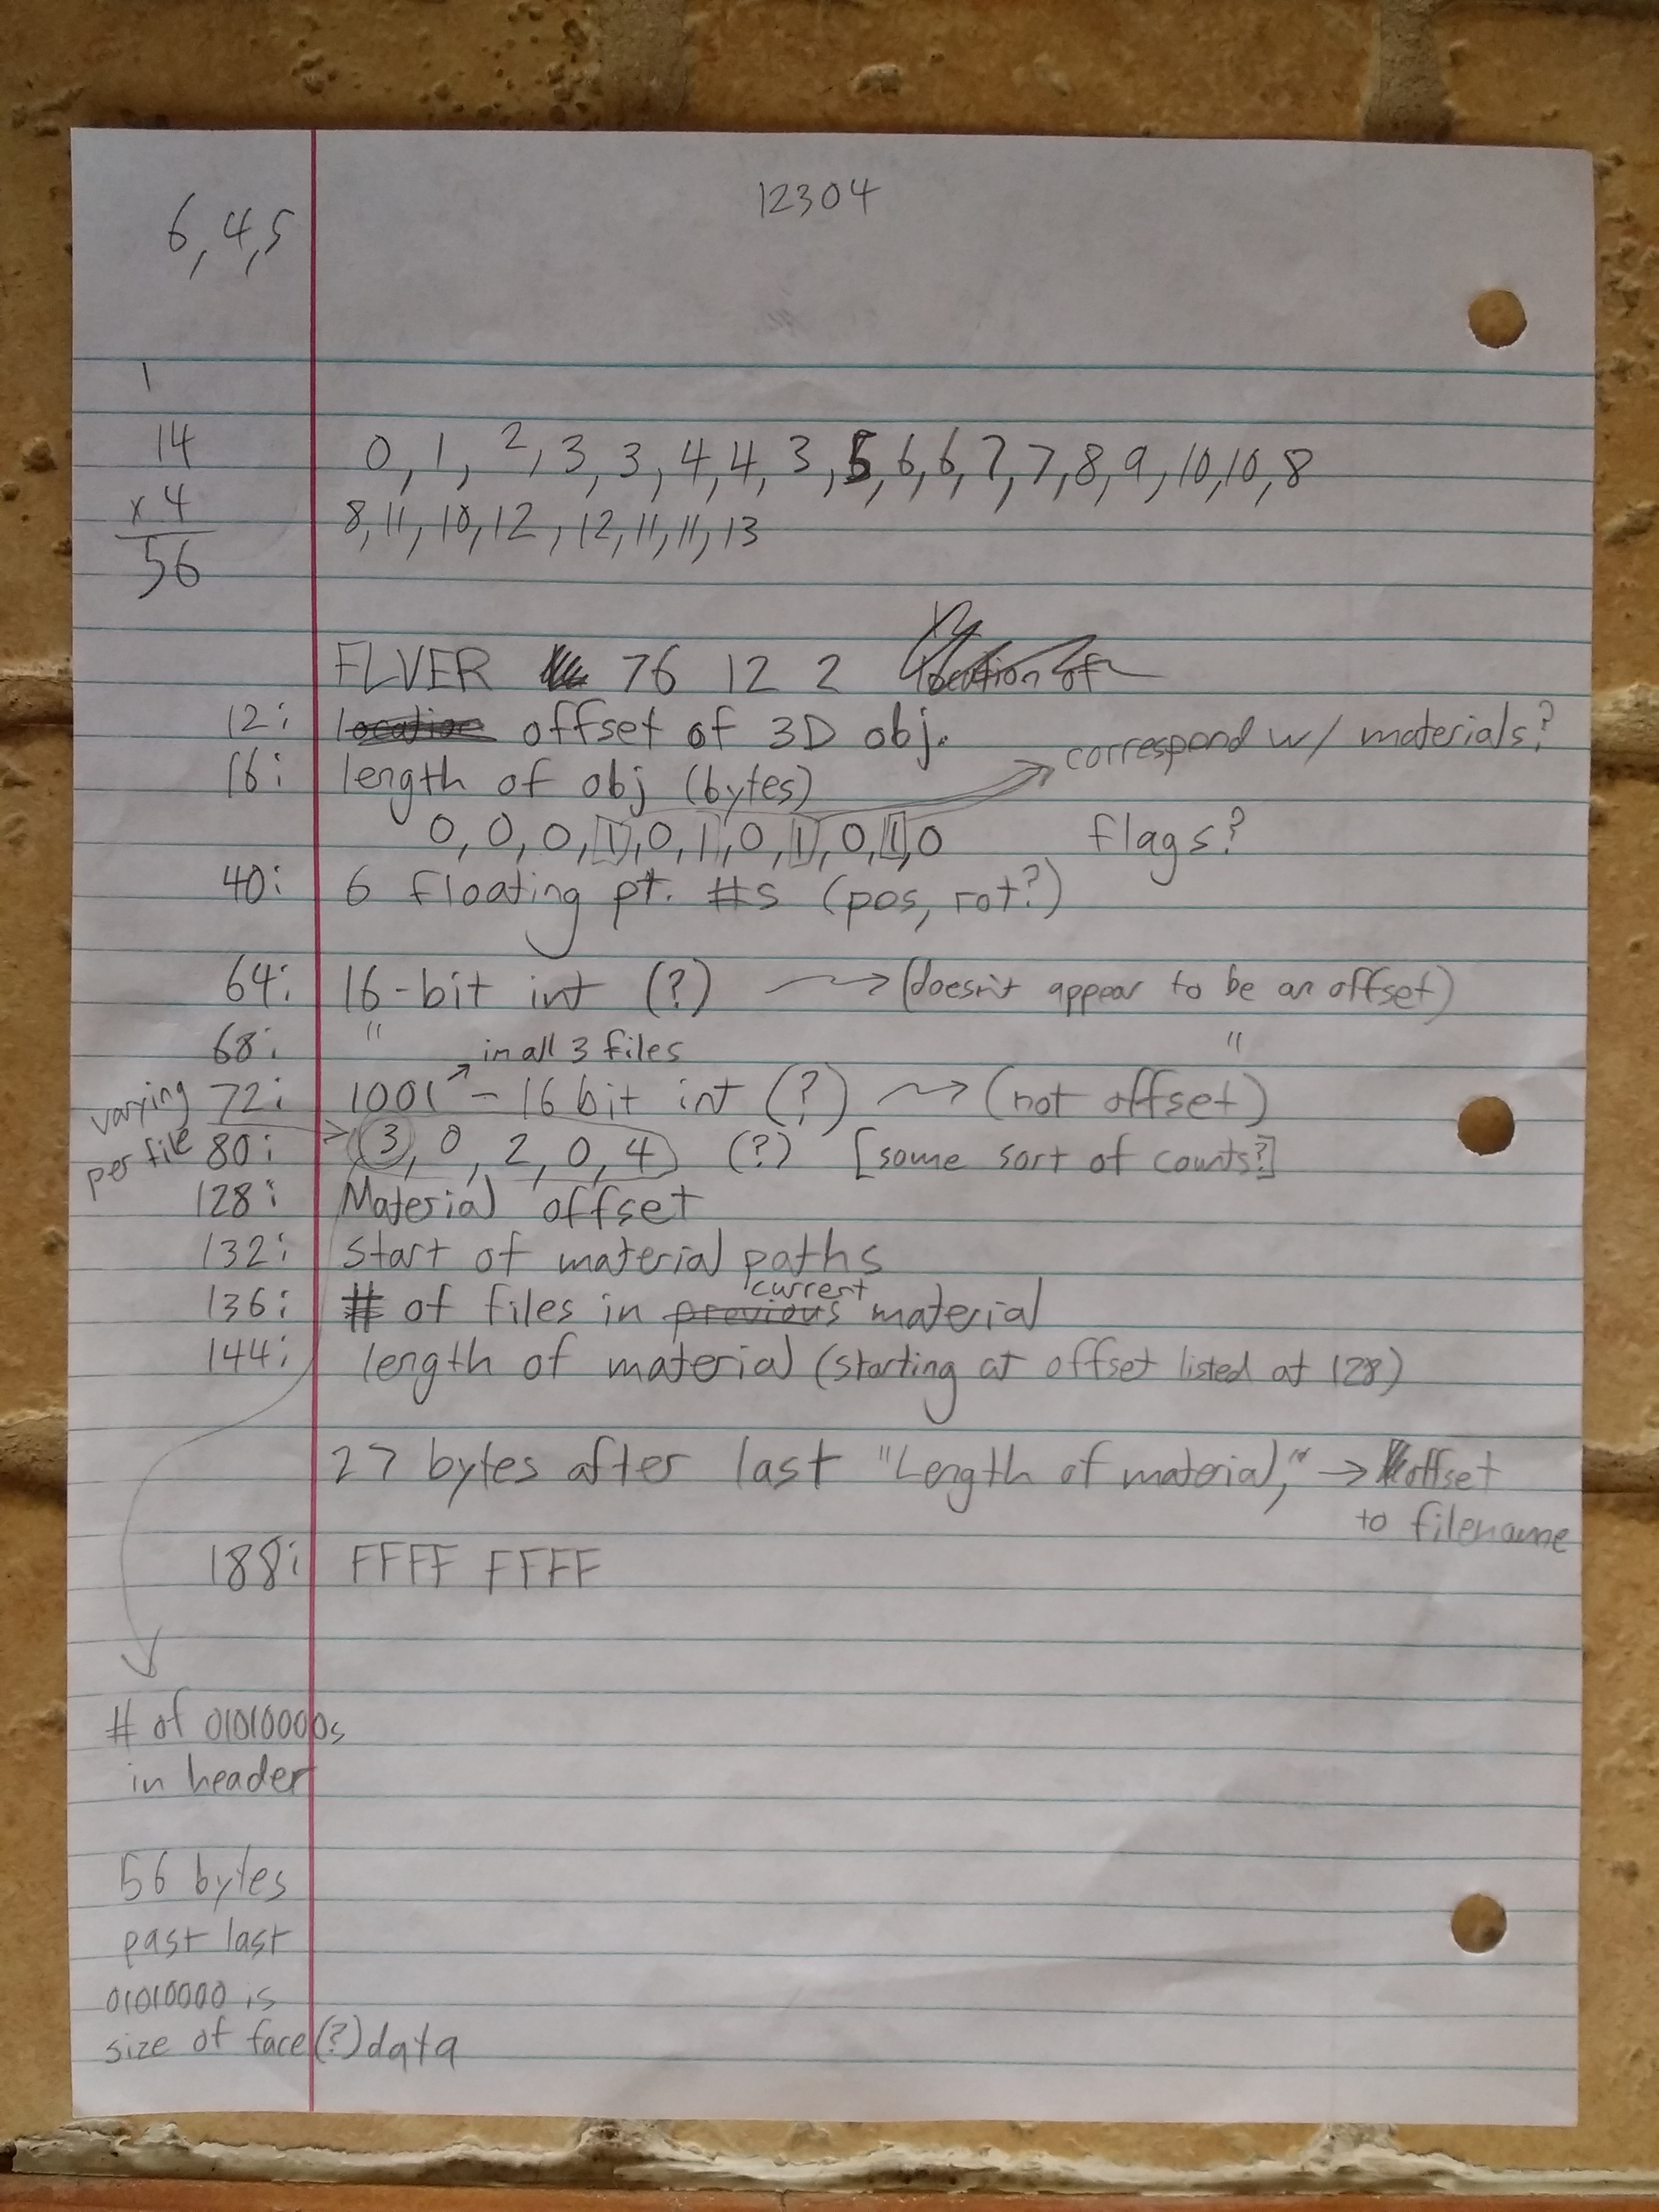 12304
6,4,5
1
14
x 4
56
0, 1, 2, 3, 3, 4, 4, 3, 5, 6, 6, 7, 7, 8, 9, 10, 10, 8
8, 11, 10, 12, 12, 11, 11, 13
FLVER 76 12 2 location of
12: location offset of 3D obj.
correspond w/ materials?
16: length of obj (bytes)
0, 0, 0, 1, 0, 1, 0, 1, 0, 1, 0 flags?
40: 6 floating pt. #s (pos, rot?)
64: 16-bit int (?) → (doesn't appear to be an offset)
68: " "
in all 3 files
72: 1001 - 16 bit int (?) → (not offset)
varying per file
80: 3, 0, 2, 0, 4 (?) [some sort of counts?]
128: Material offset
132: start of material paths
136: # of files in previous current material
144: length of material (starting at offset listed at 128)
27 bytes after last "Length of material," → offset
to filename
188: FFFF FFFF
# of 01010000s
in header
56 bytes
past last
01010000 is
size of face(?) data